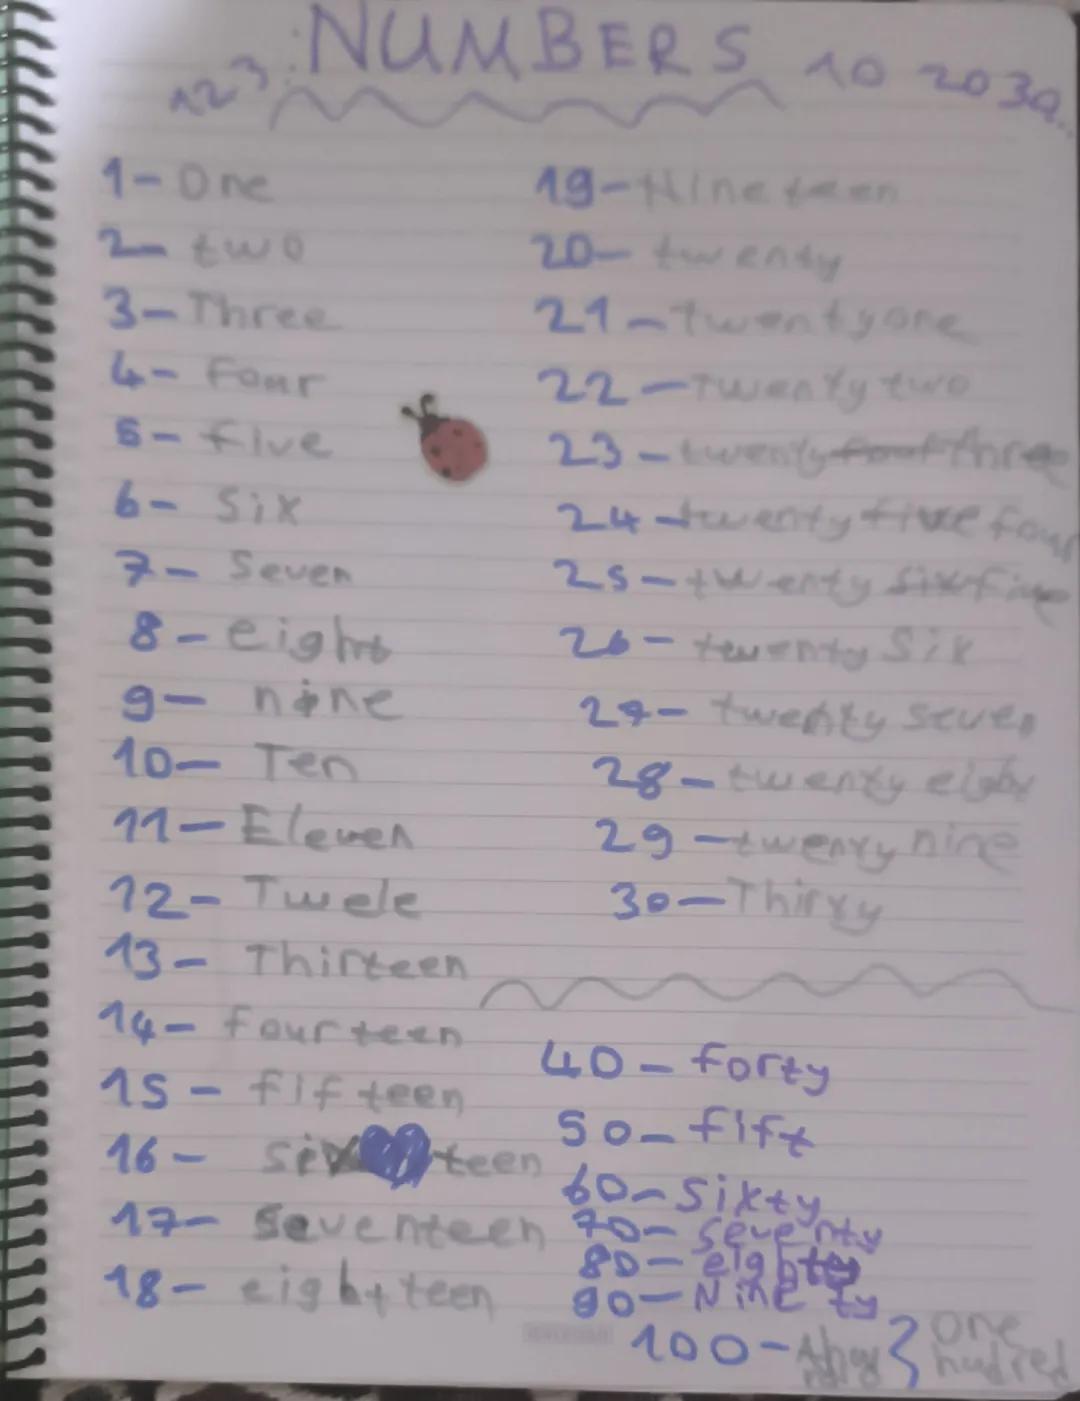 NUMBERS
123
10 20 30...
1- One
2- two
3- Three
4- Four
5- five
6- Six
7- Seven
8- eight
9- nine
10- Ten
11- Eleven
12- Twele
13- Thirteen
14- fourteen
15- fifteen
16- sixteen
17- Seventeen
18- eighteen
19- Nineteen
20- twenty
21- Twentyone
22- Twenty two
23- twenty four three
24- twenty five four
25- twenty six five
26- twenty Six
27- twenty seven
28- twenty
29- twenty nine
30- Thiryy
40- forty
50- fift
60- Sixty
70- Seventy
80- eighty
90- Ninety
100-
one
hudred